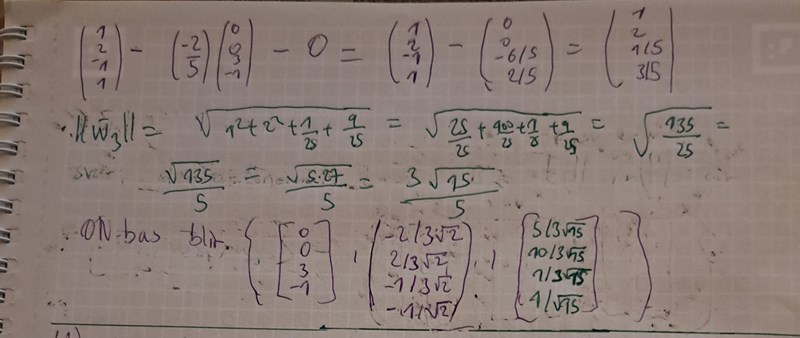 (1 2 -1 1) - (-2/5) (0 0 3 -1) - 0 = (1 2 -1 1) - (0 0 -6/5 2/5) = (1 2 1/5 3/5)
||w̄₃|| = √(1²+2²+1/25+9/25) = √(25/25+100/25+1/25+9/25) = √(135/25) =
√135/5 = √(5·27)/5 = 3√15/5
ON-bas blir: { [0 0 3 -1], (-2/3√2 2/3√2 -1/3√2 -1/√2), [5/3√15 10/3√15 1/3√15 1/√15] }